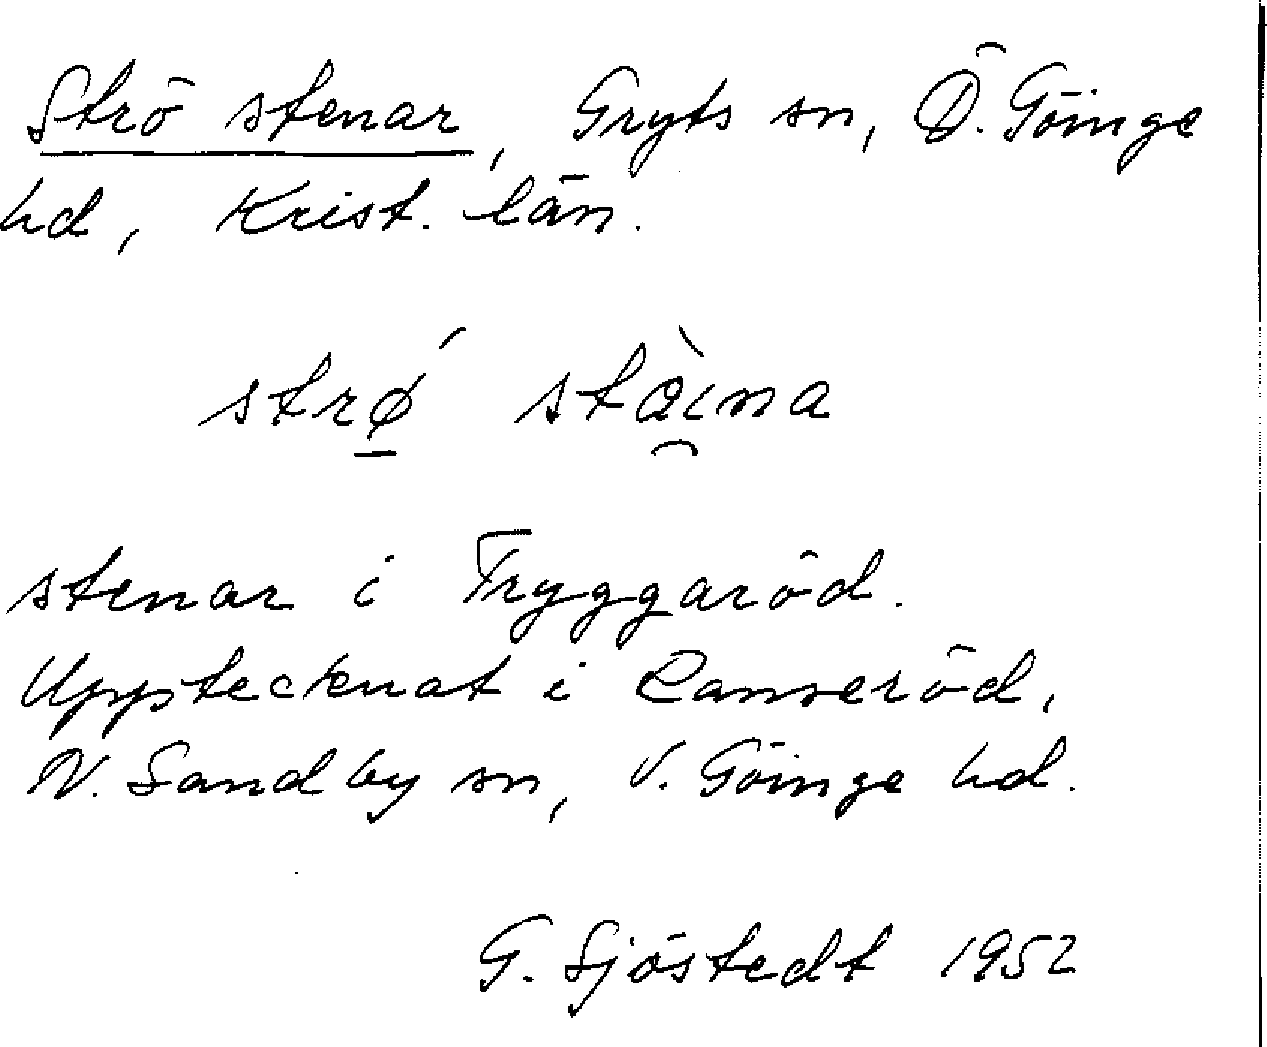 Strö stenar, Gryts sn, Ö. Göinge
hd, Krist. län.
strǿ̱ stàina
stenar i Tryggaröd.
Upptecknat i Ranseröd,
N. Sandby sn, V. Göinge hd.
G. Sjöstedt 1952